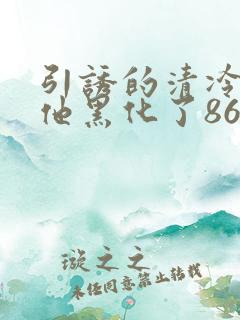 引誘的清冷
他黑化了86
璇之之
未经同意禁止转载